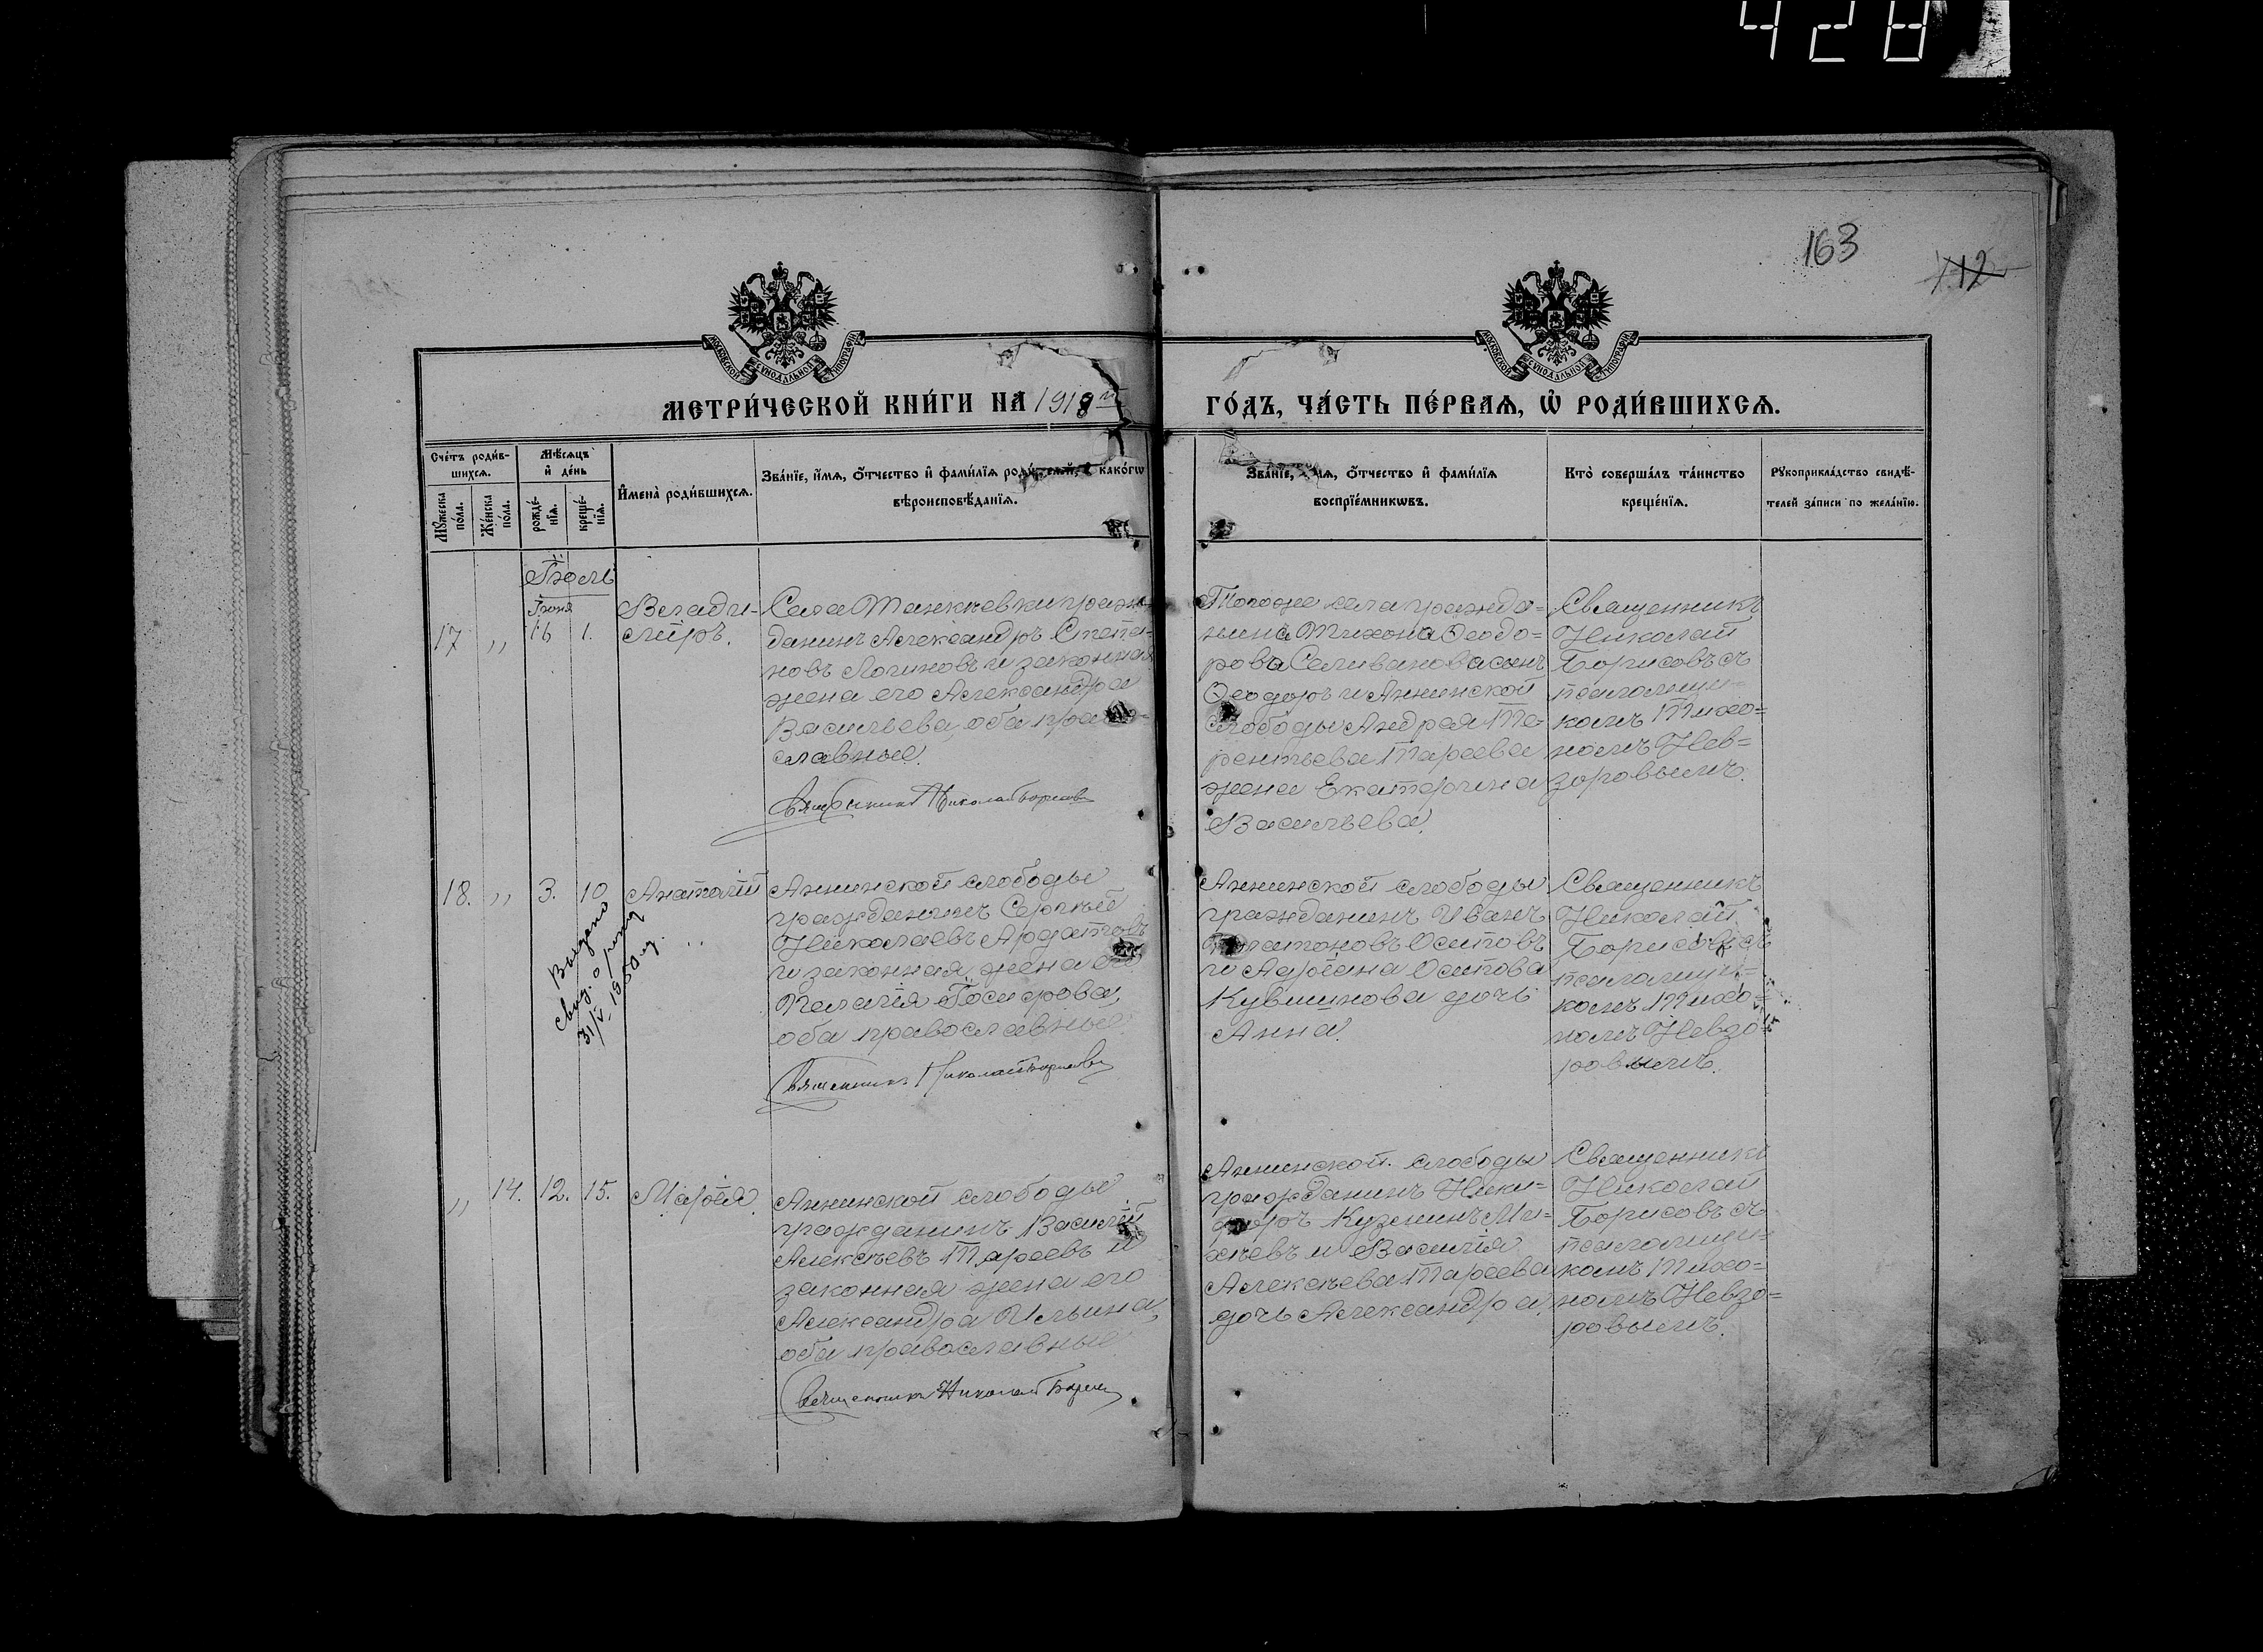 428
163
112
МОСКОВСКОЙ СѴНОДАЛЬНОЙ ТИПОГРАФІИ
МОСКОВСКОЙ СѴНОДАЛЬНОЙ ТИПОГРАФІИ
МЕТРИ́ЧЕСКОЙ КНИ́ГИ НА 1918 й ГО́ДЪ, ЧА́СТЬ ПЕ́РВАѦ, Ѡ҆ РОДИ́ВШИХСѦ.
Сче́тъ роди́в-
шихсѧ.
Мꙋ́жеска по́ла.
Же́нска по́ла.
Мѣ́сѧцъ
и҆ де́нь
рожде́-
нїѧ.
креще́-
нїѧ.
И҆мена̀ роди́вшихсѧ.
Зва́нїе, и҆́мѧ, ѻ҆́тчество и҆ фами́лїѧ роди́телей, и҆ како́гѡ
вѣроисповѣ́данїѧ.
Зва́нїе, и҆́мѧ, ѻ҆́тчество и҆ фами́лїѧ
воспрїе́мникѡвъ.
Кто̀ соверша́лъ та́инство
креще́нїѧ.
Рꙋкоприкла́дство свидѣ́-
телей за́писи по жела́нїю.
Іюль
Іюня
17 ,, 16 1.
Влади-
міръ.
Села Танкѣевки граж-
данинъ Александръ Степа-
новъ Логиновъ и законная
жена его Александра
Васильева, оба право-
славные.
Священникъ Николай Борисовъ
Тогоже села гражда-
нина Тихона Ѳеодо-
рова Селиванова сынъ
Ѳеодоръ и Аннинской
слободы Андрея Те-
рентьева Тареева
жена Екатерина
Васильева.
Священникъ
Николай
Борисовъ съ
псаломщи-
комъ Тихо-
номъ Нев-
зоровымъ.
18. ,, 3. 10
Анатолій
Выдано
свид. о рожд
31/V 1950 г.
Аннинской слободы
гражданинъ Сергѣй
Николаевъ Ардатовъ
и законная жена его
Пелагія
оба православные.
Священникъ Николай Борисовъ
Аннинской слободы
гражданинъ Иванъ
Платоновъ Осиповъ
и Адріана Осипова
Кувшинова дочь
Анна.
Священникъ
Николай
Борисовъ съ
псаломщи-
комъ Тихо-
номъ Невзо-
ровымъ.
,, 14. 12. 15.
Марія.
Аннинской слободы
гражданинъ Василій
Алексѣевъ Тареевъ и
законная жена его
Александра Ильина,
оба православные
Священникъ Николай Борисовъ
Аннинской слободы
гражданинъ Ники-
форъ Кузминъ Ми-
хѣевъ и Василія
Алексѣева Тареева
дочь Александра.
Священникъ
Николай
Борисовъ съ
псаломщи-
комъ Тихо-
номъ Невзо-
ровымъ.